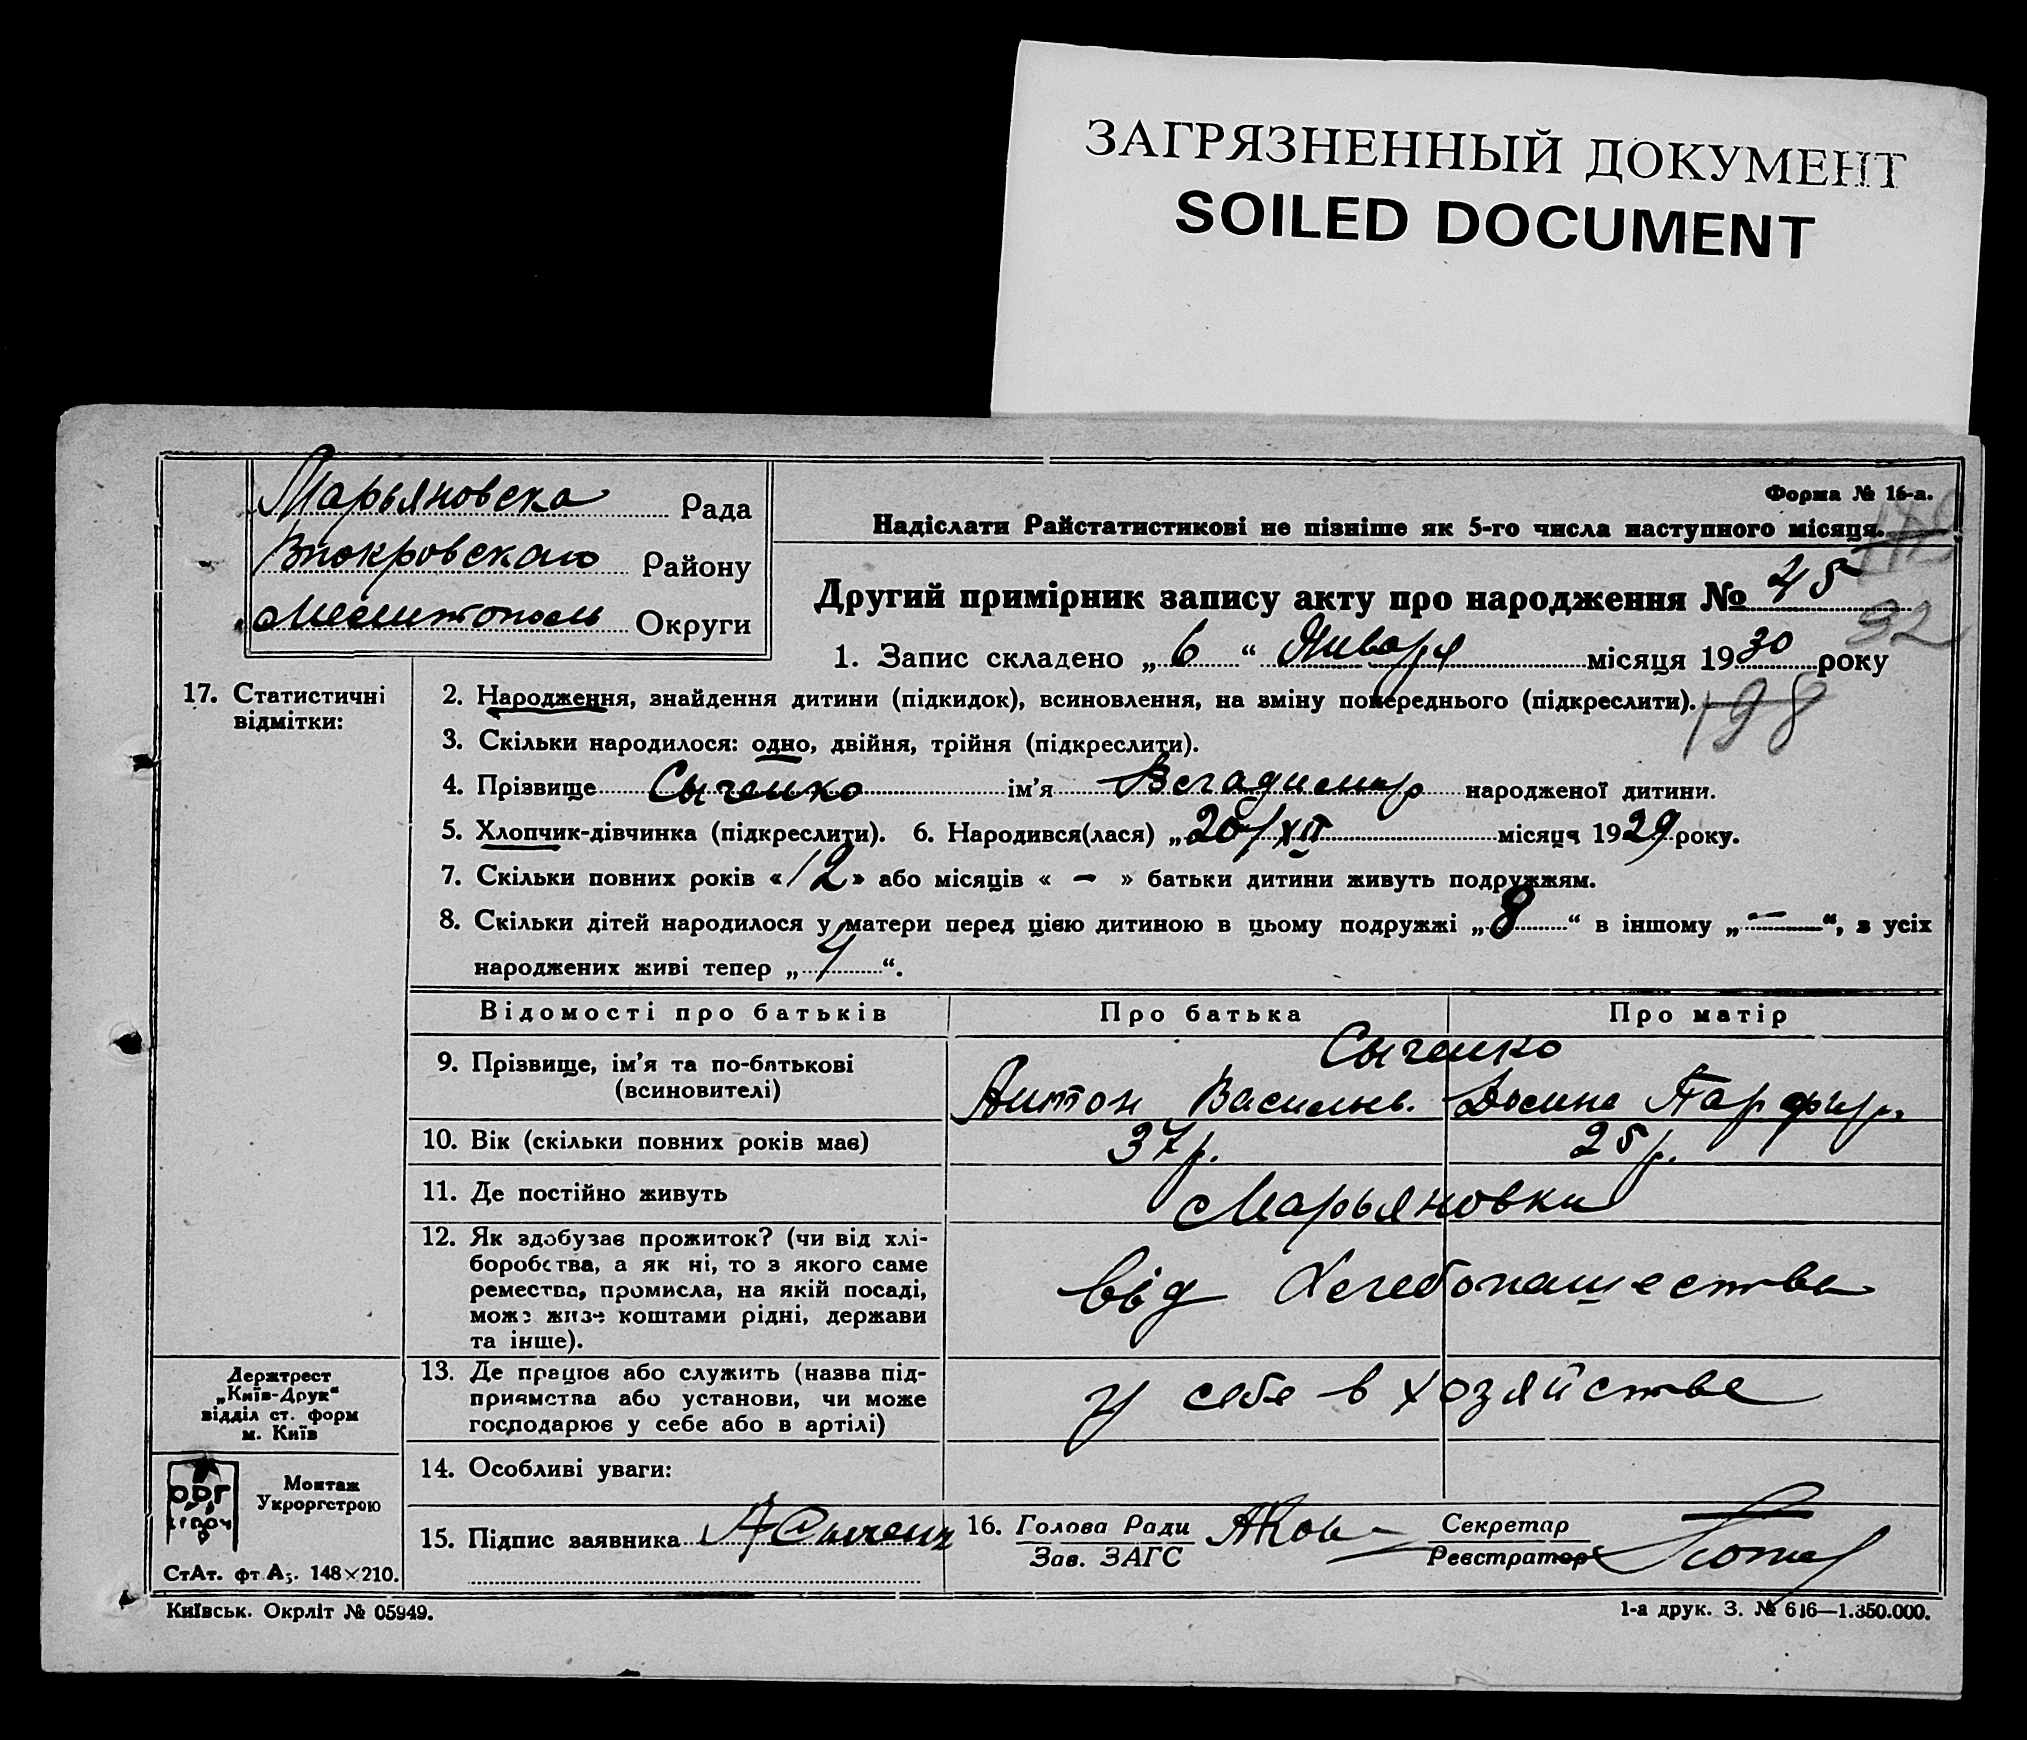 ЗАГРЯЗНЕННЫЙ ДОКУМЕНТ
SOILED DOCUMENT
Марьяновска Рада
Району
Округи
Форма № 16-а.
Надіслати Райстатистикові не пізніше як 5-го числа наступного місяця.
Другий примірник запису акту про народження № 45
92
1. Запис складено „6“ Января місяця 1930 року
198
17. Статистичні відмітки:
2. Народження, знайдення дитини (підкидок), всиновлення, на зміну попереднього (підкреслити).
3. Скільки народилося: одно, двійня, трійня (підкреслити).
4. Прізвище Сыченко ім'я Владимир народженої дитини.
5. Хлопчик-дівчинка (підкреслити). 6. Народився(лася) „20/XII місяця 1929 року.
7. Скільки повних років «12» або місяців « – » батьки дитини живуть подружжям.
8. Скільки дітей народилося у матери перед цією дитиною в цьому подружжі „8“ в іншому „–“, з усіх
народжених живі тепер „4“.
Відомості про батьків Про батька Про матір
9. Прізвище, ім'я та по-батькові
(всиновителі)
Сыченко
Антон Васильев. Парфир.
10. Вік (скільки повних років має) 37 р. 25 р.
11. Де постійно живуть Марьяновки
12. Як здобуває прожиток? (чи від хлі-
боробства, а як ні, то з якого саме
ремества, промисла, на якій посаді,
може живе коштами рідні, держави
та інше).
від Хлебопашества
13. Де працює або служить (назва під-
приємства або установи, чи може
господарює у себе або в артілі)
У себе в хозяйстве
14. Особливі уваги:
15. Підпис заявника А Сыченк
16. Голова Ради
Зав. ЗАГС
Секретар
Реєстратор
Держтрест
„Київ-Друк“
відділ ст. форм
м. Київ
Монтаж
Укроргстрою
СтАт. фт. А₅. 148×210.
Київськ. Окрліт № 05949.
1-а друк. З. № 616—1.350.000.